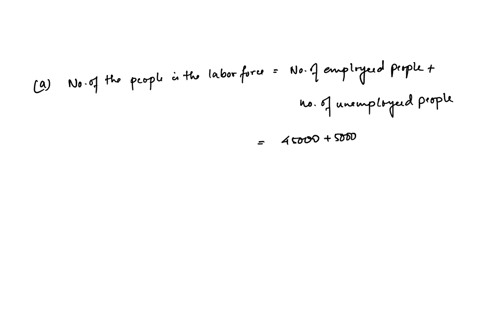 (a) No. of the people is the labor force = No. of employeed people +
no. of unemployeed people
= 45000 + 5000